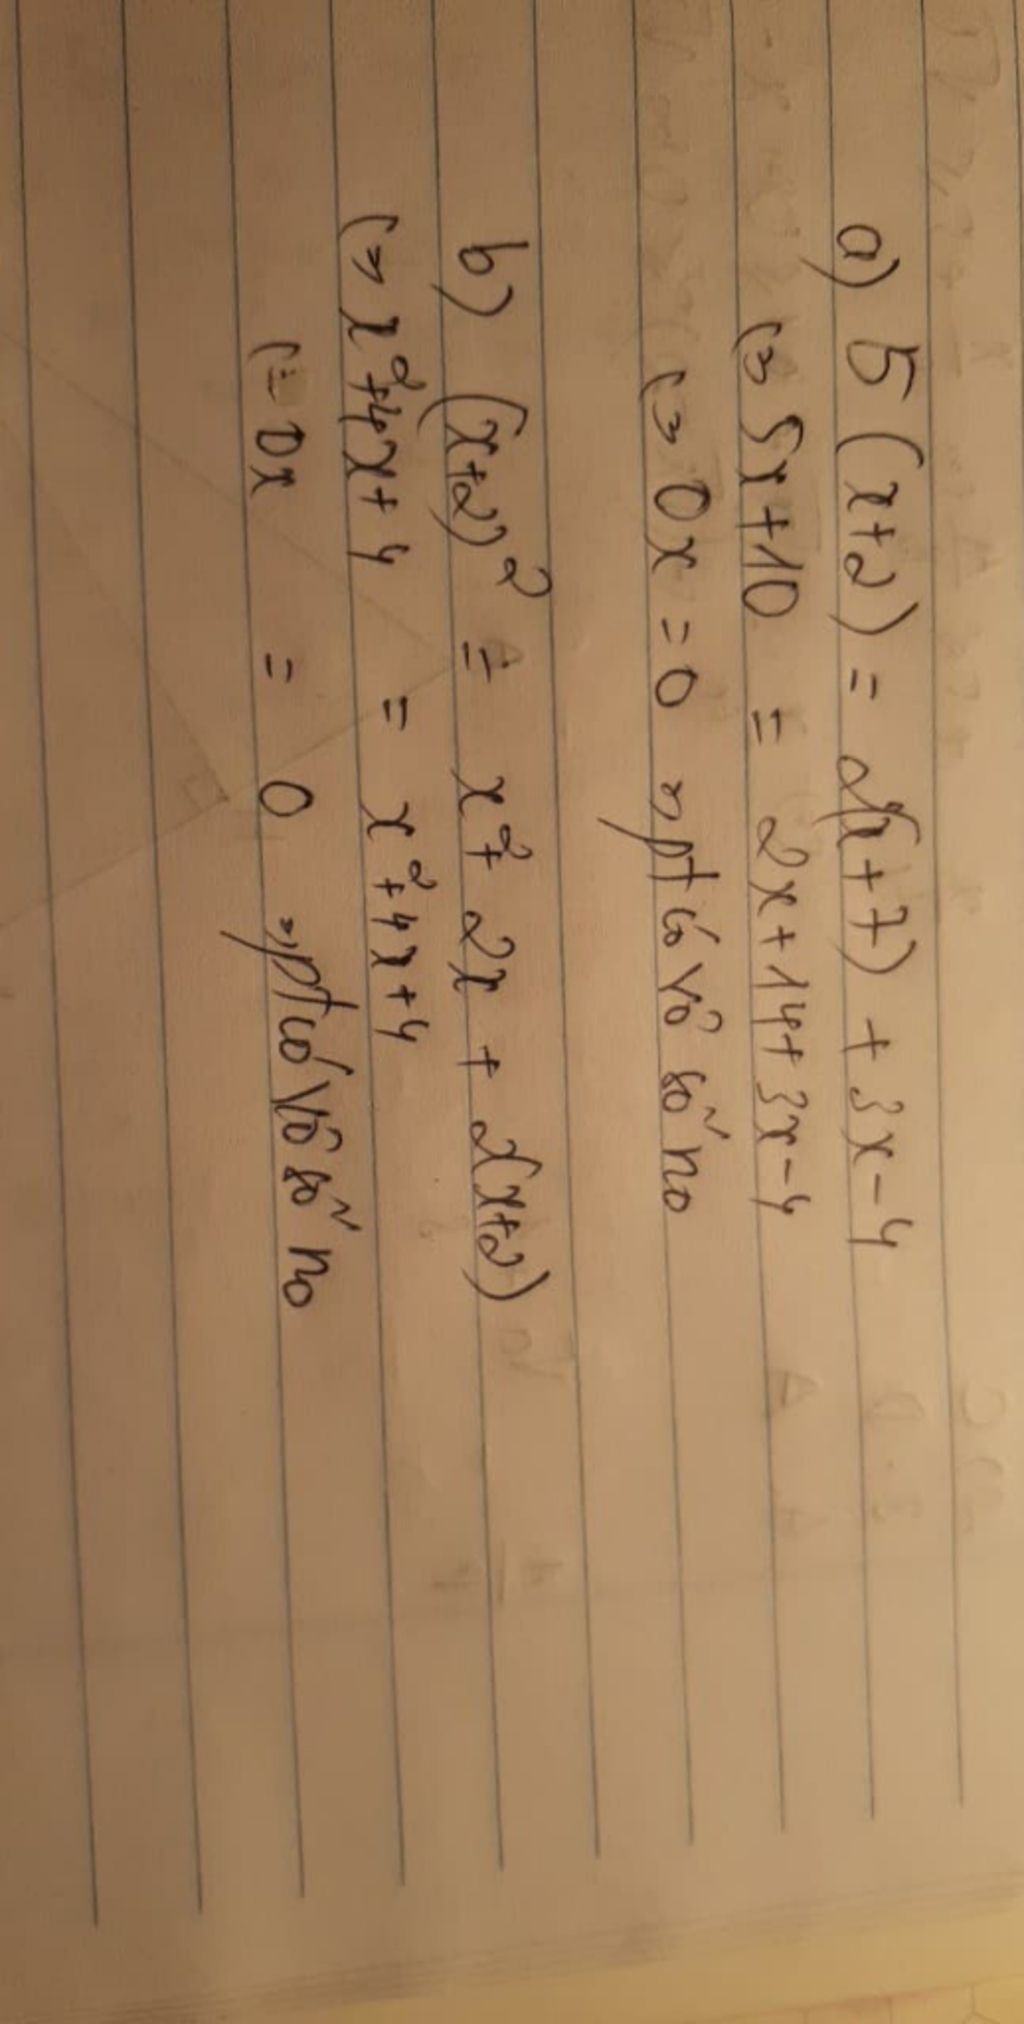 a) 5(x+2) = 2(x+7) + 3x-4
<=> 5x+10 = 2x+14+3x-4
<=> 0x = 0 => pt có vô số no
b) (x+2)² = x² + 2x + 2(x+2)
<=> x²+4x+4 = x²+4x+4
<=> 0x = 0 => pt có vô số no